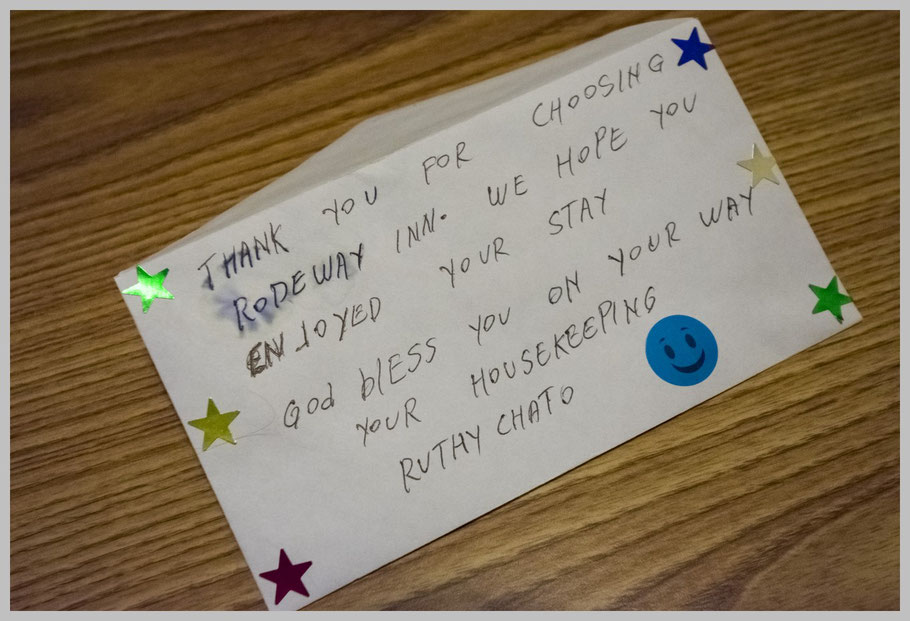 THANK YOU FOR CHOOSING
RODEWAY INN. WE HOPE YOU
ENJOYED YOUR STAY
God blESS YOU ON YOUR WAY
YOUR HOUSEKEEPING
RUTHY CHATO